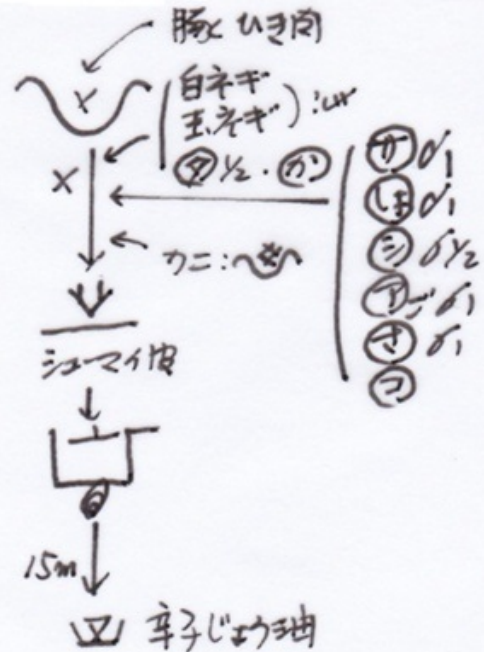 豚ひき肉
白ネギ
玉ネギ
タ 1/2・か
サ 1
しお 1
シ 1/2
ア ご 1
さ 1
コ
カニ:
シューマイ皮
15m
辛子じょう油